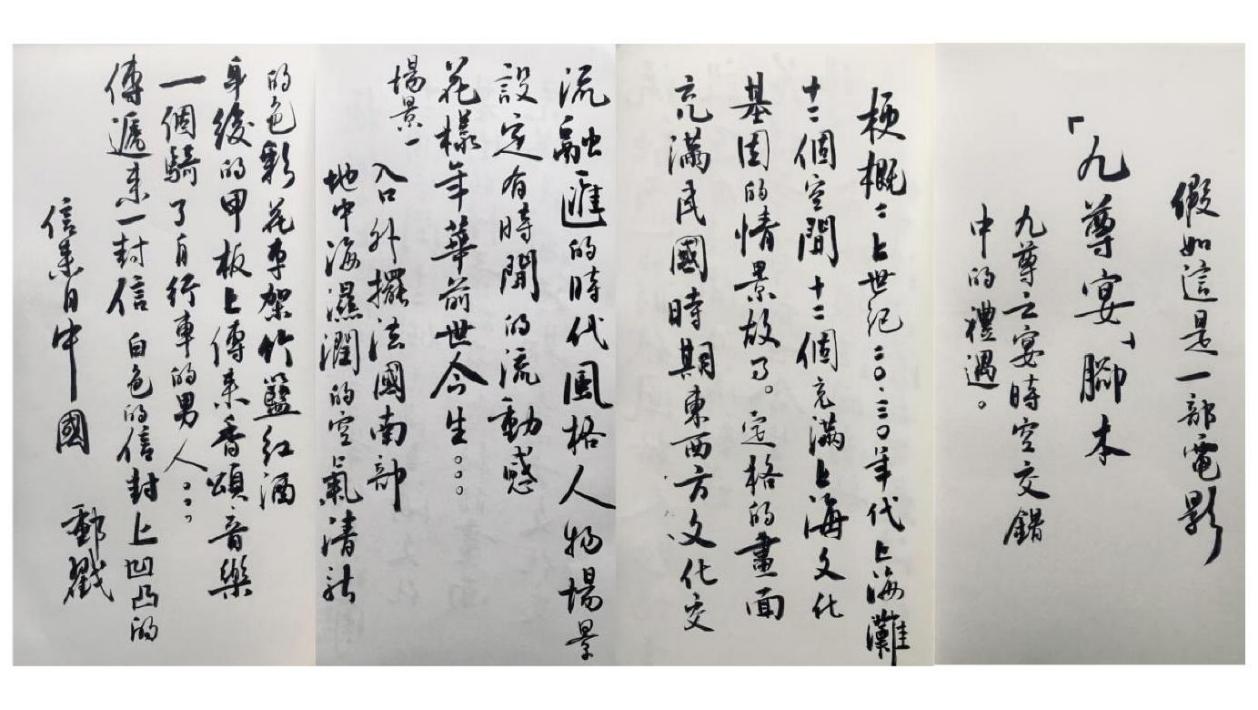 假如這是一部電影
「九尊宴」腳本
九尊之宴時空交錯
中的禮遇。
梗概：上世紀二〇.三〇年代上海灘
十二個空間十二個充滿上海文化
基因的情景故事。定格的畫面
充滿民國時期東西方文化交
流融匯的時代風格人物場景
設定有時間的流動感
花樣年華前世今生。。。
場景一
入口外擺法國南部
地中海濕潤的空氣清新
的色彩花車架竹籃紅酒
身後的甲板上傳來香頌音樂
一個騎了自行車的男人。。。
傳遞來一封信 白色的信封上凹凸的
郵戳
信來自中國